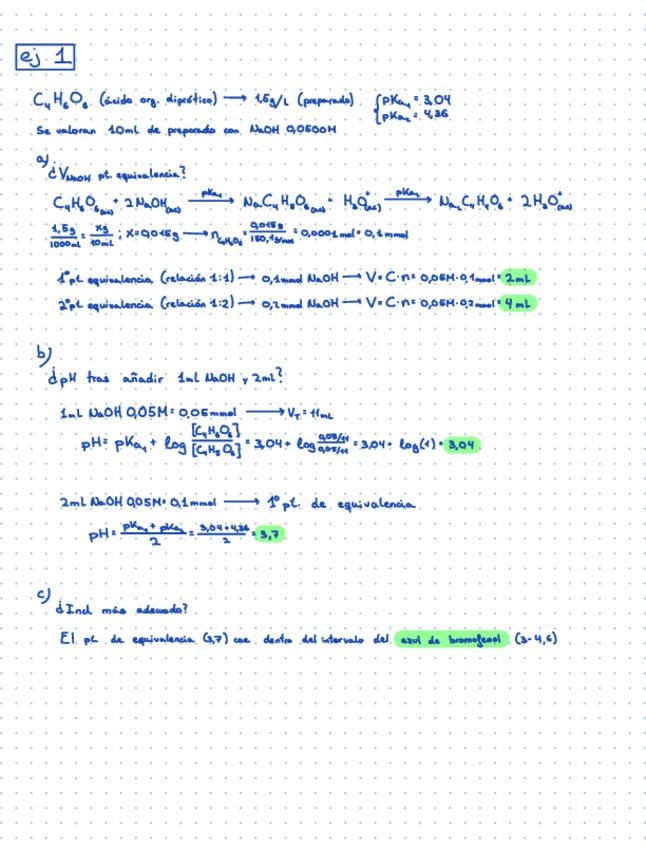 ej 1
C₄H₆O₆ (ácido org. diprótico) → 1,5g/L (preparado) { pKa₁ = 3,04
pKa₂ = 4,36
Se valoran 10mL de preparado con NaOH 0,0500M
a)
¿V NaOH pt. equivalencia?
C₄H₆O₆(ac) + 2NaOH(ac) —pKa₁→ NaC₄H₅O₆(ac) + H₃O⁺(ac) —pKa₂→ Na₂C₄H₄O₆ + 2H₃O⁺(ac)
1,5g/1000mL = xg/10mL ; x=0,015g → n C₄H₆O₆ = 0,015g/150,1g/mol = 0,0001mol = 0,1mmol
1º pt. equivalencia (relación 1:1) → 0,1mmol NaOH → V = C·n = 0,05M·0,1mmol = 2mL
2º pt. equivalencia (relación 1:2) → 0,2mmol NaOH → V = C·n = 0,05M·0,2mmol = 4mL
b)
¿pH tras añadir 1mL NaOH y 2mL?
1mL NaOH 0,05M = 0,05mmol → V_T = 11mL
pH = pKa₁ + log [C₄H₆O₆]/[C₄H₅O₆] = 3,04 + log 0,05/11/0,05/11 = 3,04 + log(1) = 3,04
2mL NaOH 0,05M = 0,1mmol → 1º pt. de equivalencia
pH = pKa₁ + pKa₂/2 = 3,04+4,36/2 = 3,7
c)
¿Ind. más adecuado?
El pt. de equivalencia (3,7) cae dentro del intervalo del azul de bromofenol (3-4,6)